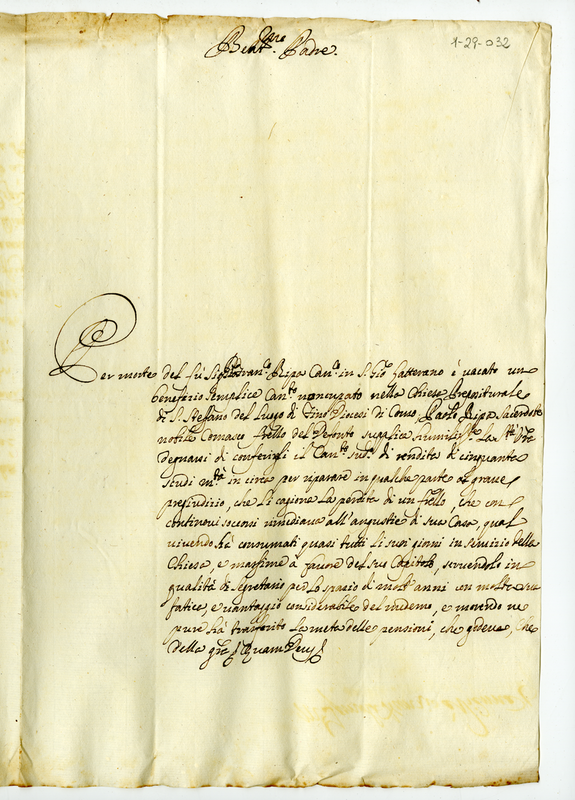 Beat.mo Padre.
1-29-032
Per morte del fù Sig.r Fran.co Ripa Can.co in S. Gio: Latterano è vacato un
beneficio semplice Can.to noncupato nella Chiesa Prepositurale
di S. Stefano del Luogo di Diocesi di Como, Paolo Ripa Sacerdote
nobile Comasco f.rello del Defonto supplica humilis.te La S.tà V.ra
degnarsi di conferirgli il Can.to sud.o di rendita di cinquanta
scudi m.ta in circa per riparare in qualche parte al grave
pregiudizio, che li cagiona la perdita di un f.rello, che con
continovi soccorsi rimediava all'angustie di sua Casa, qual
vivendo hà consumati quasi tutti li suoi giorni in servizio della
Chiesa, e massime à favore del suo Capitolo, servendolo in
qualità di Segretario per lo spazio di molt'anni con molta sua
fatica, e vantaggio considerabile del medemo, e morendo ne
pure hà transferito la metà delle pensioni, che godeva, Che
della gra. Quam Deus